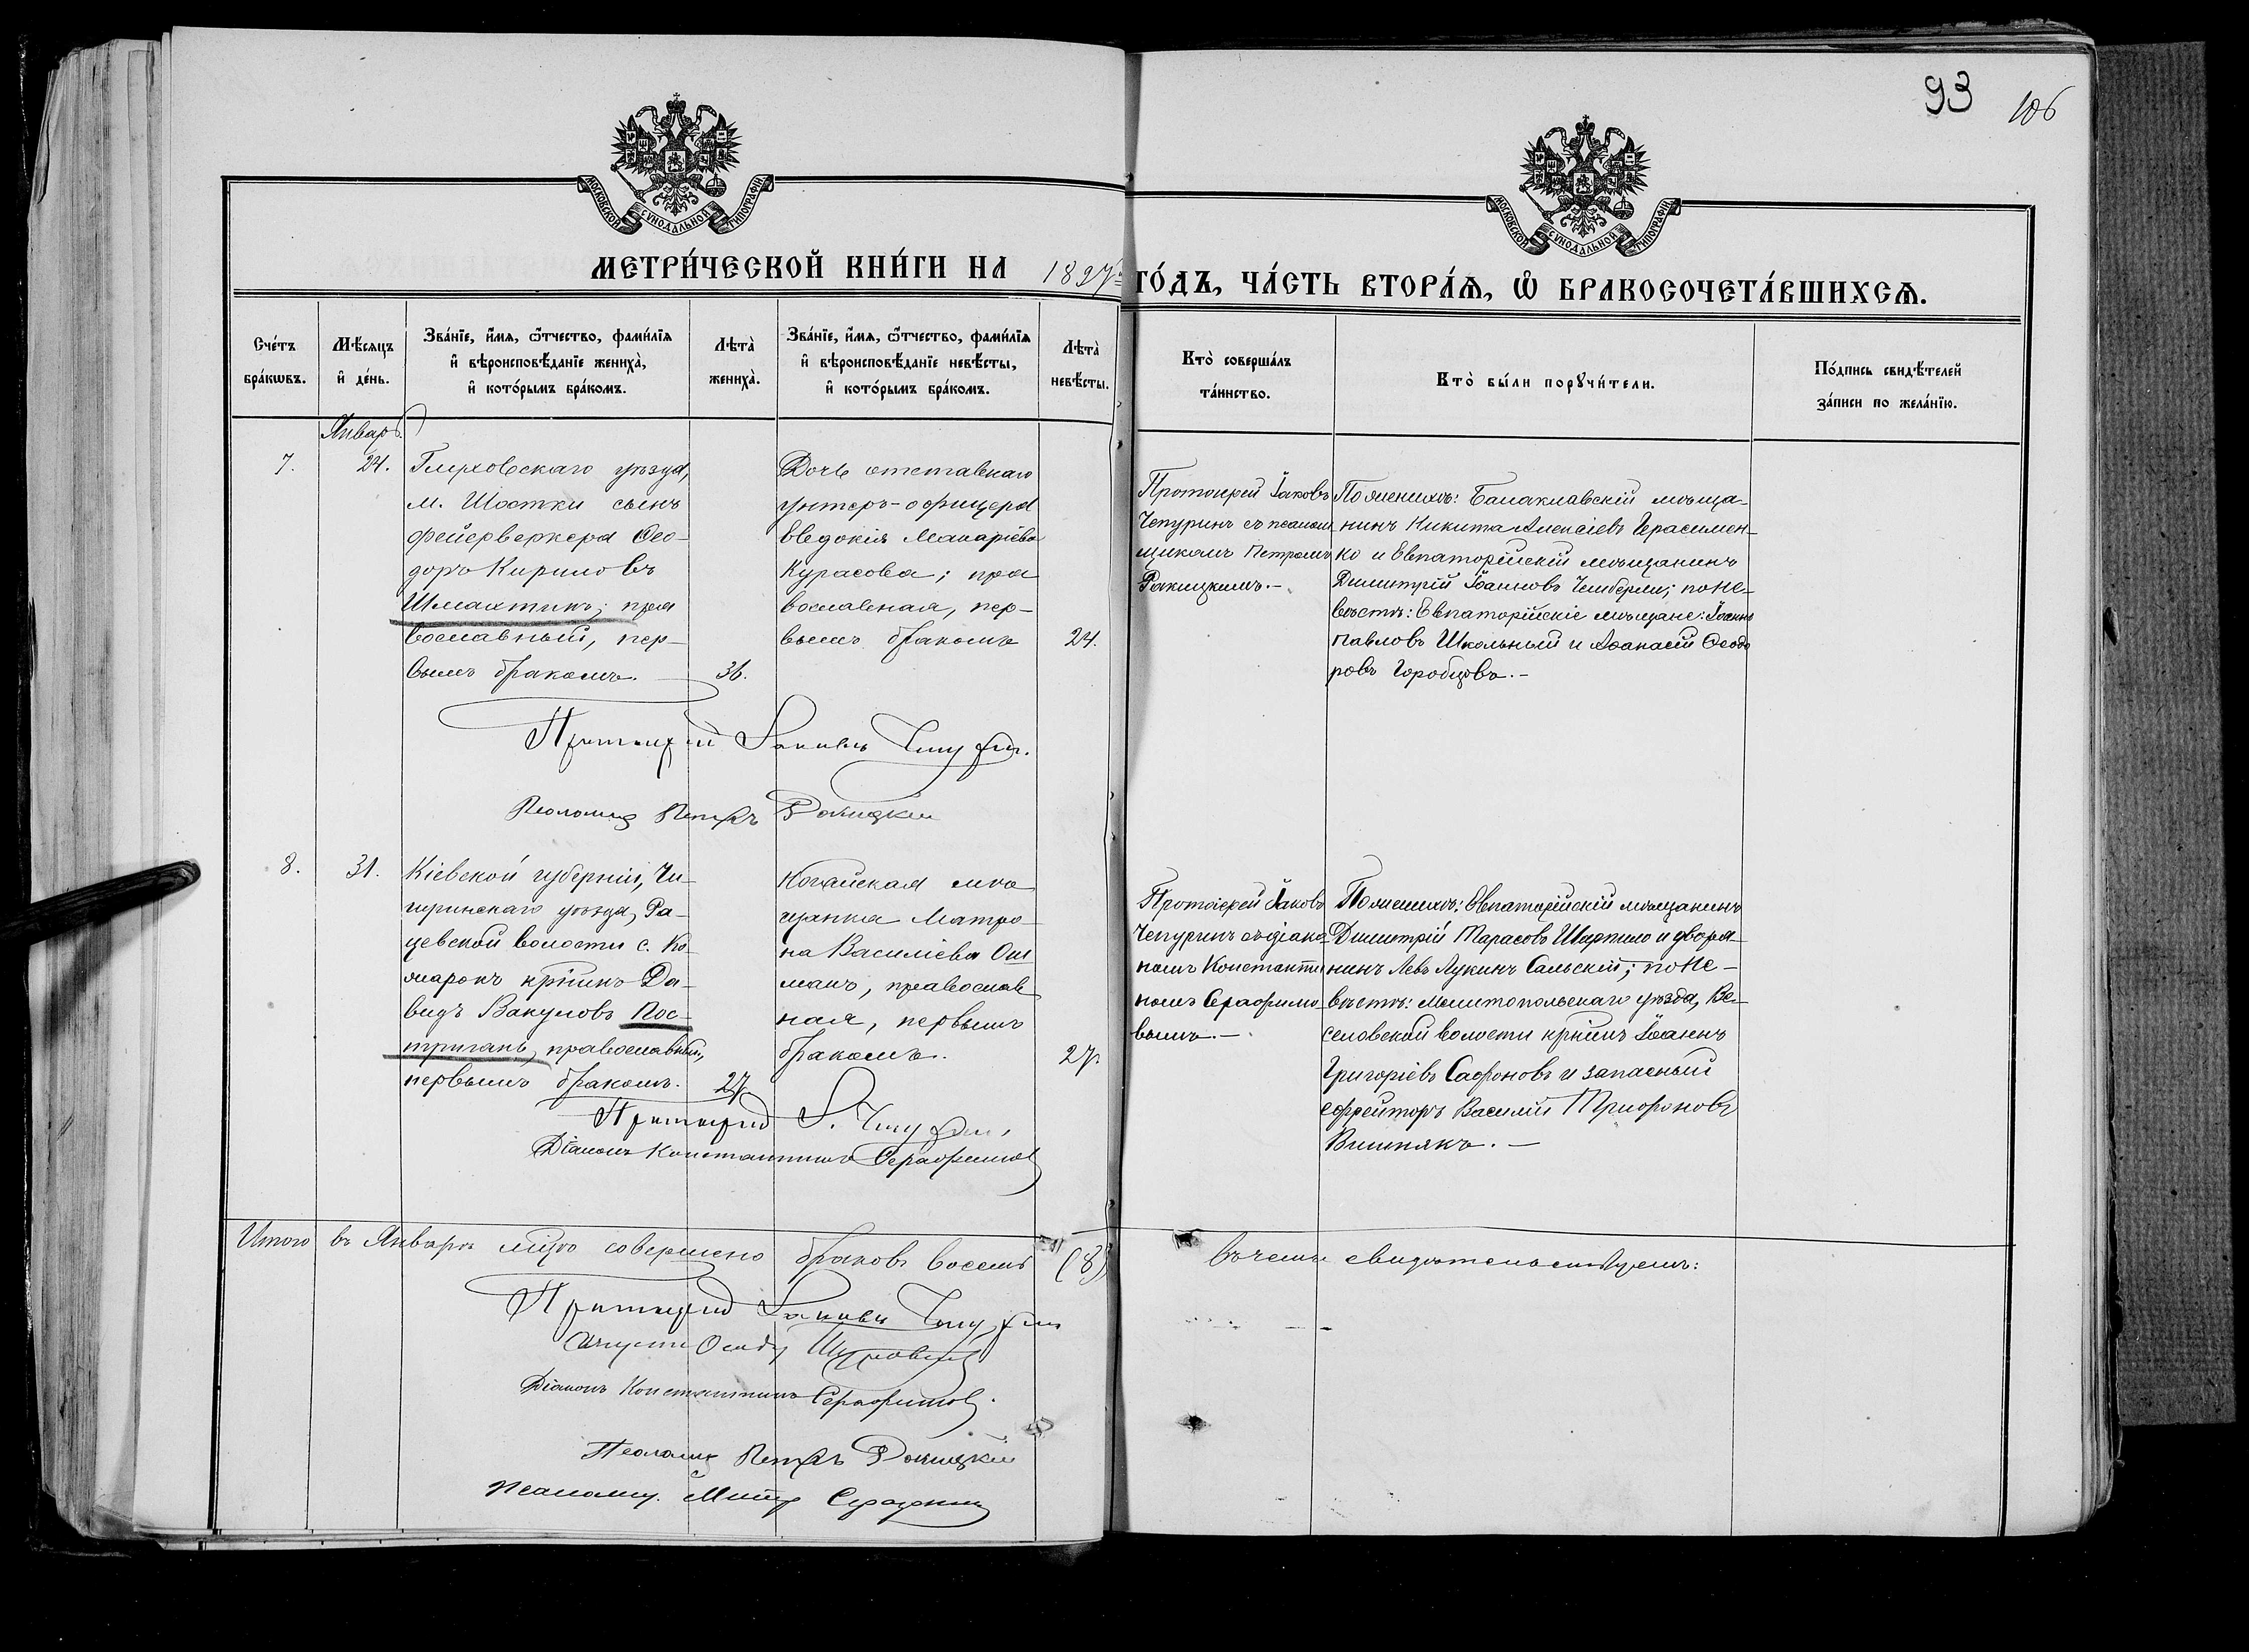 93
106
МОСКОВСКОЙ СѴНОДАЛЬНОЙ ТИПОГРАФІИ
МОСКОВСКОЙ СѴНОДАЛЬНОЙ ТИПОГРАФІИ
МЕТРИ́ЧЕСКОЙ КНИ́ГИ НА 1897
ГО́ДЪ, ЧА́СТЬ ВТОРА́Ѧ, Ѽ БРАКОСОЧЕТА́ВШИХСѦ.
Сче́тъ
бра́кѡвъ.
Мѣ́сяцъ
и҆ де́нь.
Зва́нїе, и҆́мѧ, ѻ҆́тчество, фами́лїѧ
и҆ вѣроисповѣ́данїе женихà,
и҆ кото́рымъ бра́комъ.
Лѣтà
женихà.
Зва́нїе, и҆́мѧ, ѻ҆́тчество, фами́лїѧ
и҆ вѣроисповѣ́данїе невѣ́сты,
и҆ кото́рымъ бра́комъ.
Лѣтà
невѣ́сты.
Кто̀ соверша́лъ
та́инство.
Кто̀ бы́ли порꙋчи́тели.
По́дпись свидѣ́телей
за́писи по жела́нїю.
Январь
7.
24.
Глуховскаго уѣзда,
м. Шостки сынъ
фейерверкера Ѳео-
доръ Кириловъ
Шмахтинъ; пра
вославный, пер-
вымъ бракомъ.
36.
Дочь отставнаго
унтеръ-офицера
Евдокія Макаріева
Курасова; пра
вославная, пер-
вымъ бракомъ
24.
Протоіерей Іаковъ
Чепуринъ съ псалом
щикомъ Петромъ
Ракицкимъ.-
По женихѣ: Балаклавскій мѣща-
нинъ Никита Алексіевъ Герасимен-
ко и Евпаторійскій мѣщанинъ
Димитрій Іоанновъ Чемберли; по не-
вѣстѣ: Евпаторійскіе мѣщане: Іоаннъ
Павловъ Школьный и Аѳанасій Ѳеодо
ровъ Горобцовъ.-
Протоіерей Іаковъ Чепуринъ.
Псаломщ Петръ Ракицкій
8.
31.
Кіевской губерніи, Чи-
гиринскаго уѣзда, Ра-
цевской волости с. Ко
жарокъ крнинъ Да-
видъ Вакуловъ Пос-
тригань, православный,
первымъ бракомъ.
27
Ногайская мѣ
щанка Матро
на Василіева Ош
манъ, православ
ная, первымъ
бракомъ.
27.
Протоіерей Іаковъ
Чепуринъ съ діако
номъ Константи
номъ Серафимо
вымъ.-
По женихѣ: Евпаторійскій мѣщанинъ
Димитрій Тарасовъ Шарпило и дворя-
нинъ Левъ Лукинъ Сальскій; по не-
вѣстѣ: Мелитопольскаго уѣзда, Ве-
селовской волости крнинъ Іоаннъ
Григоріевъ Сафоновъ и запасный
ефрейторъ Василій Трифоновъ
Вишнякъ.-
Протоіерей І. Чепуринъ,
Діаконъ Константинъ Серафимовъ
Итого въ Январѣ мцѣ совершено браковъ восемь (8)
въ чемъ свидѣтельствуемъ:
Протоіерей Іаковъ Чепуринъ
Діаконъ Константинъ Серафимовъ.
Псаломщ Петръ Ракицкій
Псаломщ.